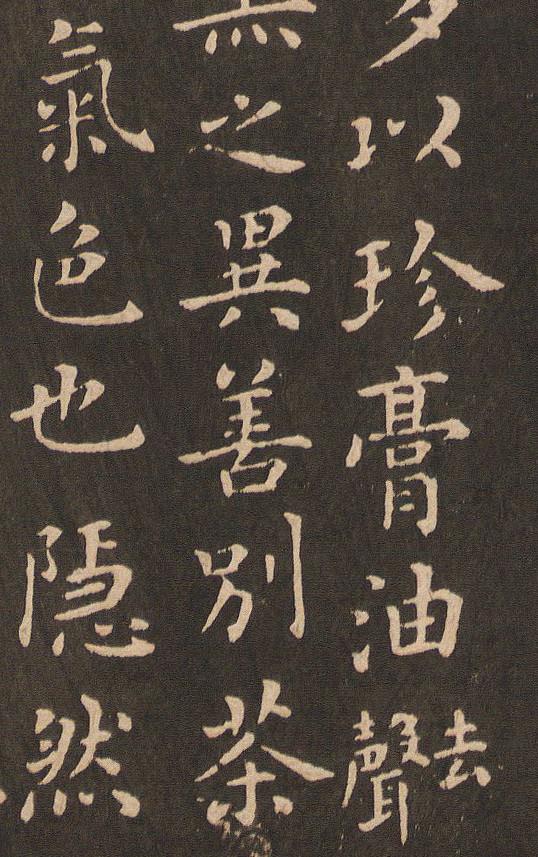 以珍膏油去聲
之異善別茶
氣色也隱然